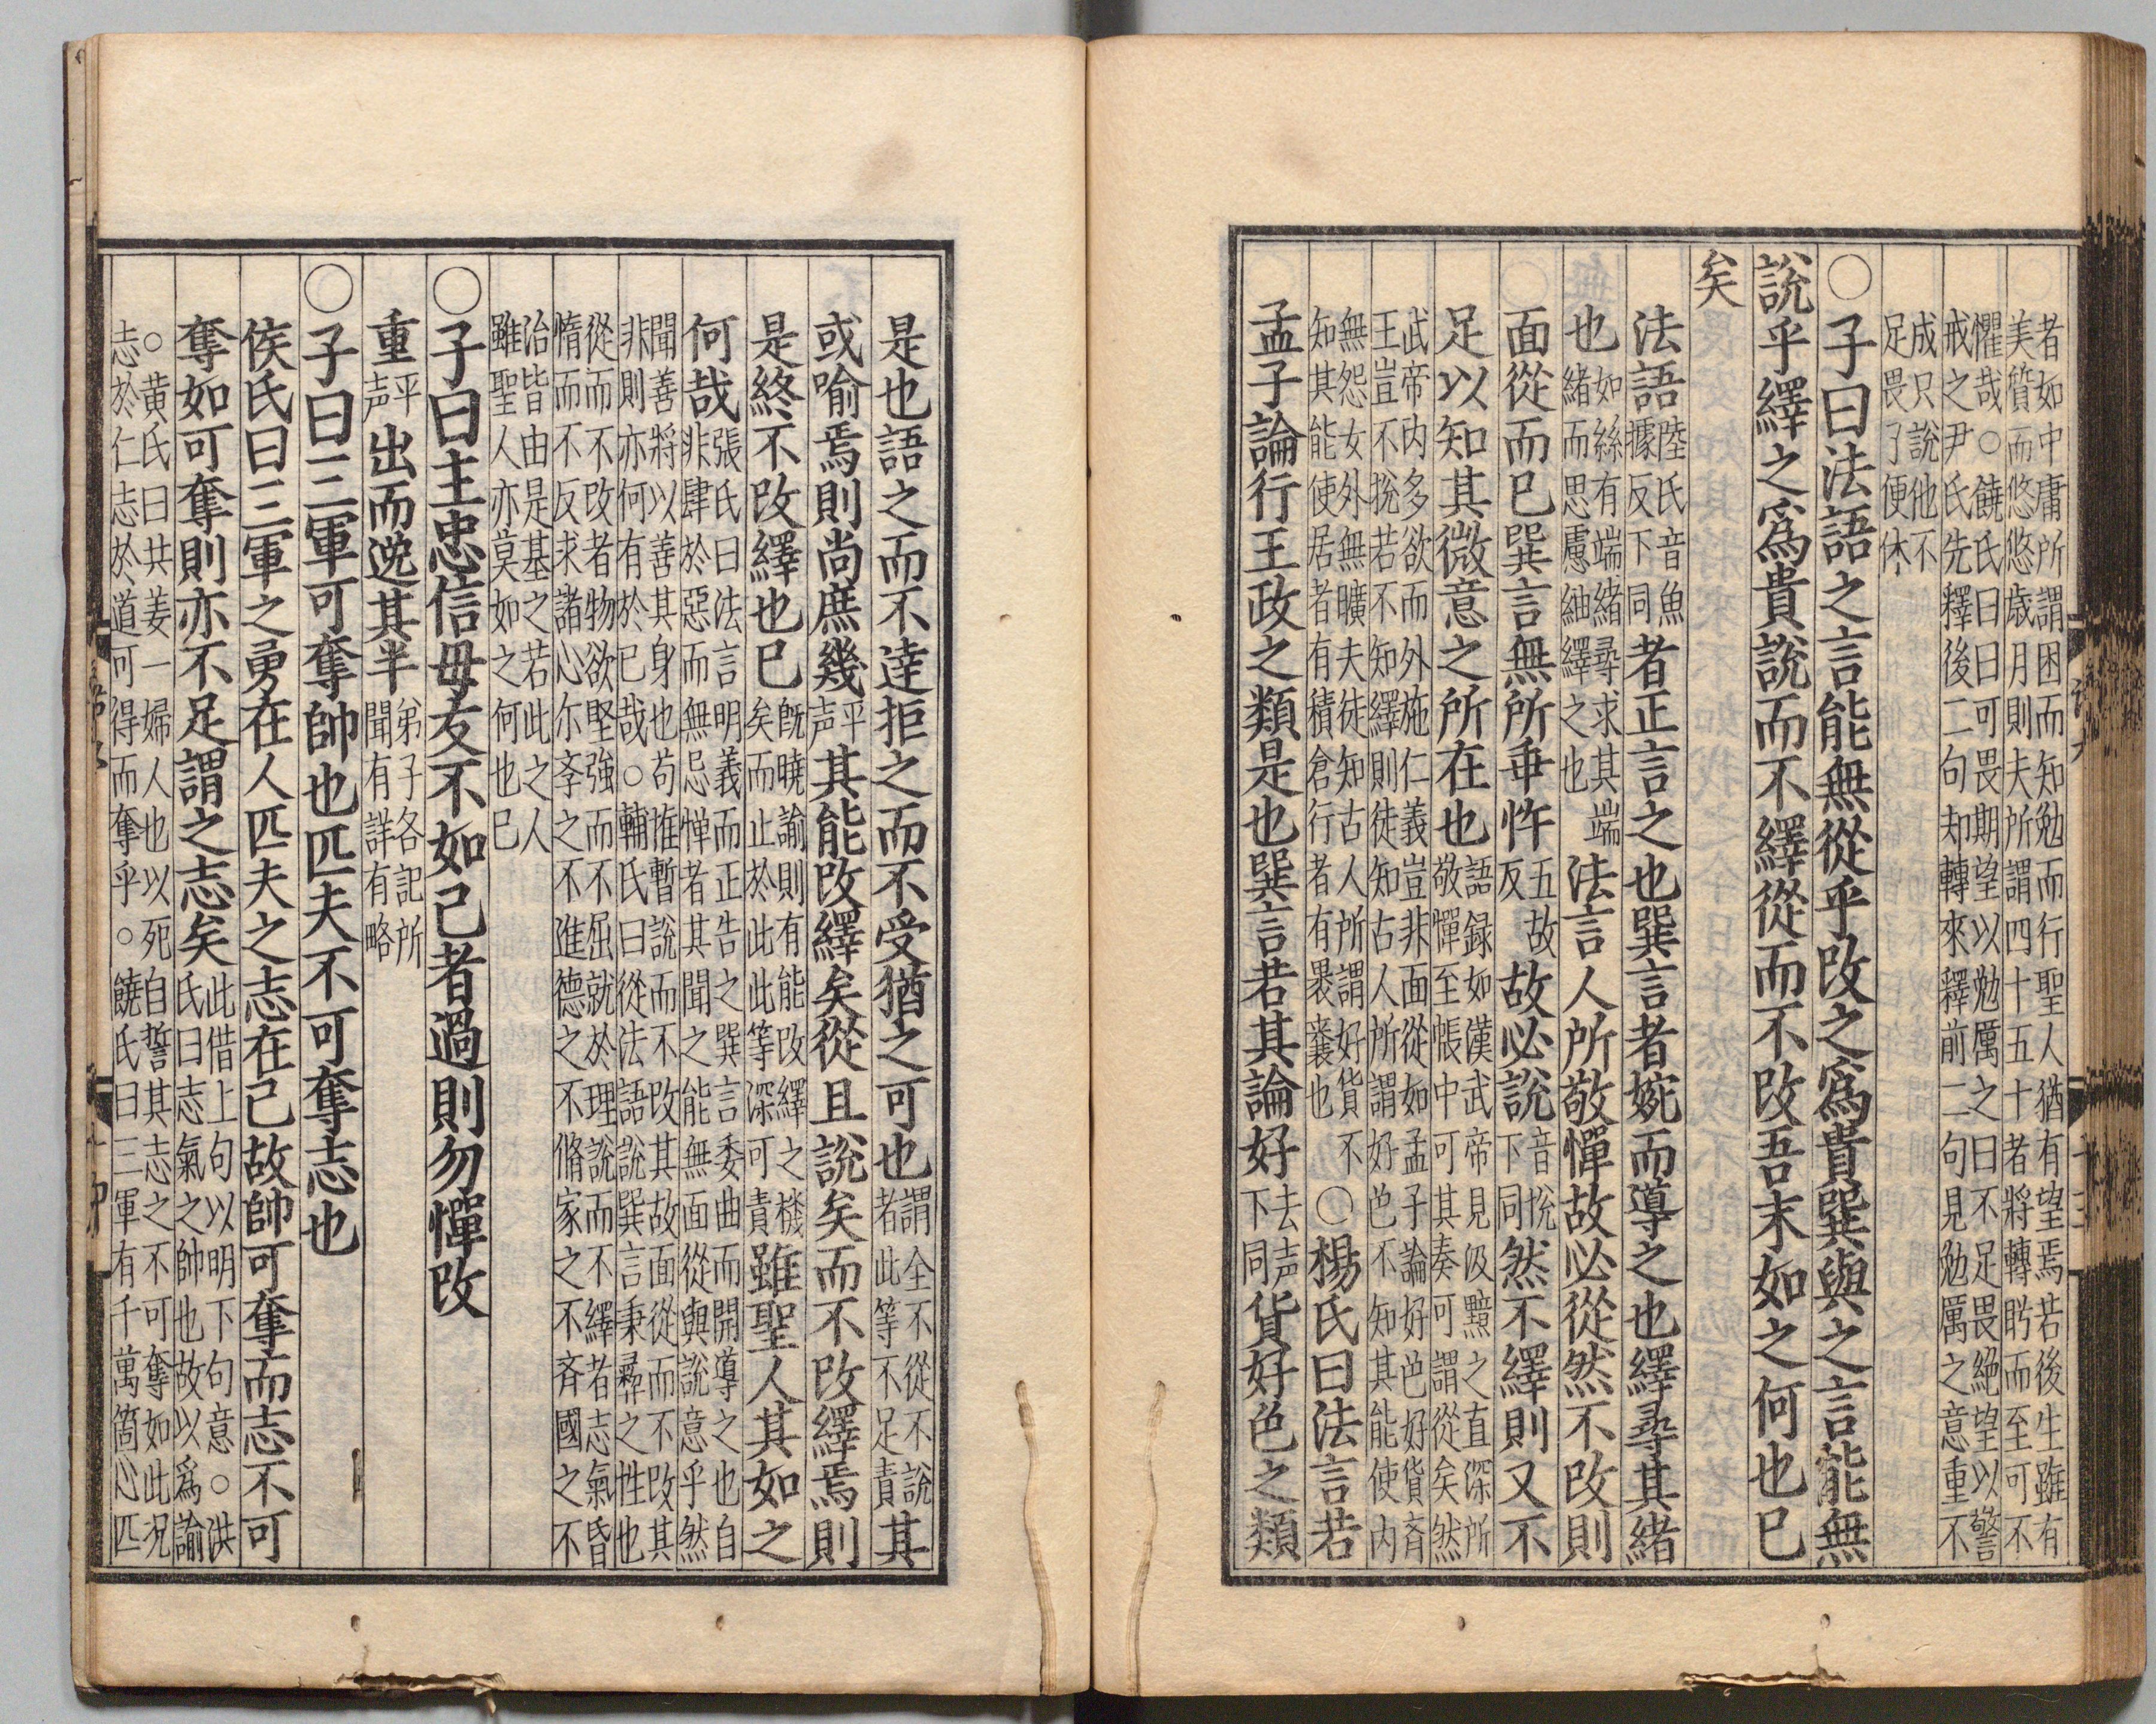 者如中庸所謂困而知勉而行聖人猶有望焉若後生雖有
美質而悠悠歲月則夫所謂四十五十者將轉盻而至可不
懼哉○饒氏曰曰可畏期望以勉厲之曰不足畏絕望以警
戒之尹氏先釋後二句却轉來釋前二句見勉厲之意重不
成只說他不
足畏了便休
○子曰法語之言能無從乎改之爲貴巽與之言能無
說乎繹之爲貴說而不繹從而不改吾末如之何也已
矣
法語
陸氏音魚
據反下同
者正言之也巽言者婉而導之也繹尋其緒
也
如絲有端緒尋求其端
緒而思慮紬繹之也
法言人所敬憚故必從然不改則
面從而已巽言無所乖忤
五故
反
故必說
音悅
下同
然不繹則又不
足以知其微意之所在也
語錄如漢武帝見汲黯之直深所
敬憚至帳中可其奏可謂從矣然
武帝内多欲而外施仁義豈非面從如孟子論好色好貨齊
王豈不悅若不知繹則徒知古人所謂好色不知其能使内
無怨女外無曠夫徒知古人所謂好貨不
知其能使居者有積倉行者有褁囊也
○楊氏曰法言若
孟子論行王政之類是也巽言若其論好
去声
下同
貨好色之類
是也語之而不達拒之而不受猶之可也
謂全不從不說
者此等不足責
其
或喻焉則尚庶幾
平
声
其能改繹矣從且說矣而不改繹焉則
是終不改繹也已
旣曉諭則有能改繹之機
矣而止於此此等深可責
雖聖人其如之
何哉
張氏曰法言明義而正告之巽言委曲而開導之也自
非肆於惡而無忌憚者其聞之能無面從與說意乎然
聞善將以善其身也苟惟暫說而不改其故面從而不改其
非則亦何有於已哉○輔氏曰從法語說巽言秉彝之性也
從而不改者物欲堅強而不屈就於理說而不繹者志氣昏
惰而不反求諸心尔孝之不進德之不脩家之不齊國之不
治皆由是基之若此之人
雖聖人亦莫如之何也已
○子曰主忠信毋友不如己者過則勿憚改
重
平
声
出而逸其半
弟子各記所
聞有詳有略
○子曰三軍可奪帥也匹夫不可奪志也
侯氏曰三軍之勇在人匹夫之志在己故帥可奪而志不可
奪如可奪則亦不足謂之志矣
此借上句以明下句意○洪
氏曰志氣之帥也故以爲諭
○黃氏曰共姜一婦人也以死自誓其志之不可奪如此况
志於仁志於道可得而奪乎○饒氏曰三軍有千萬箇心匹